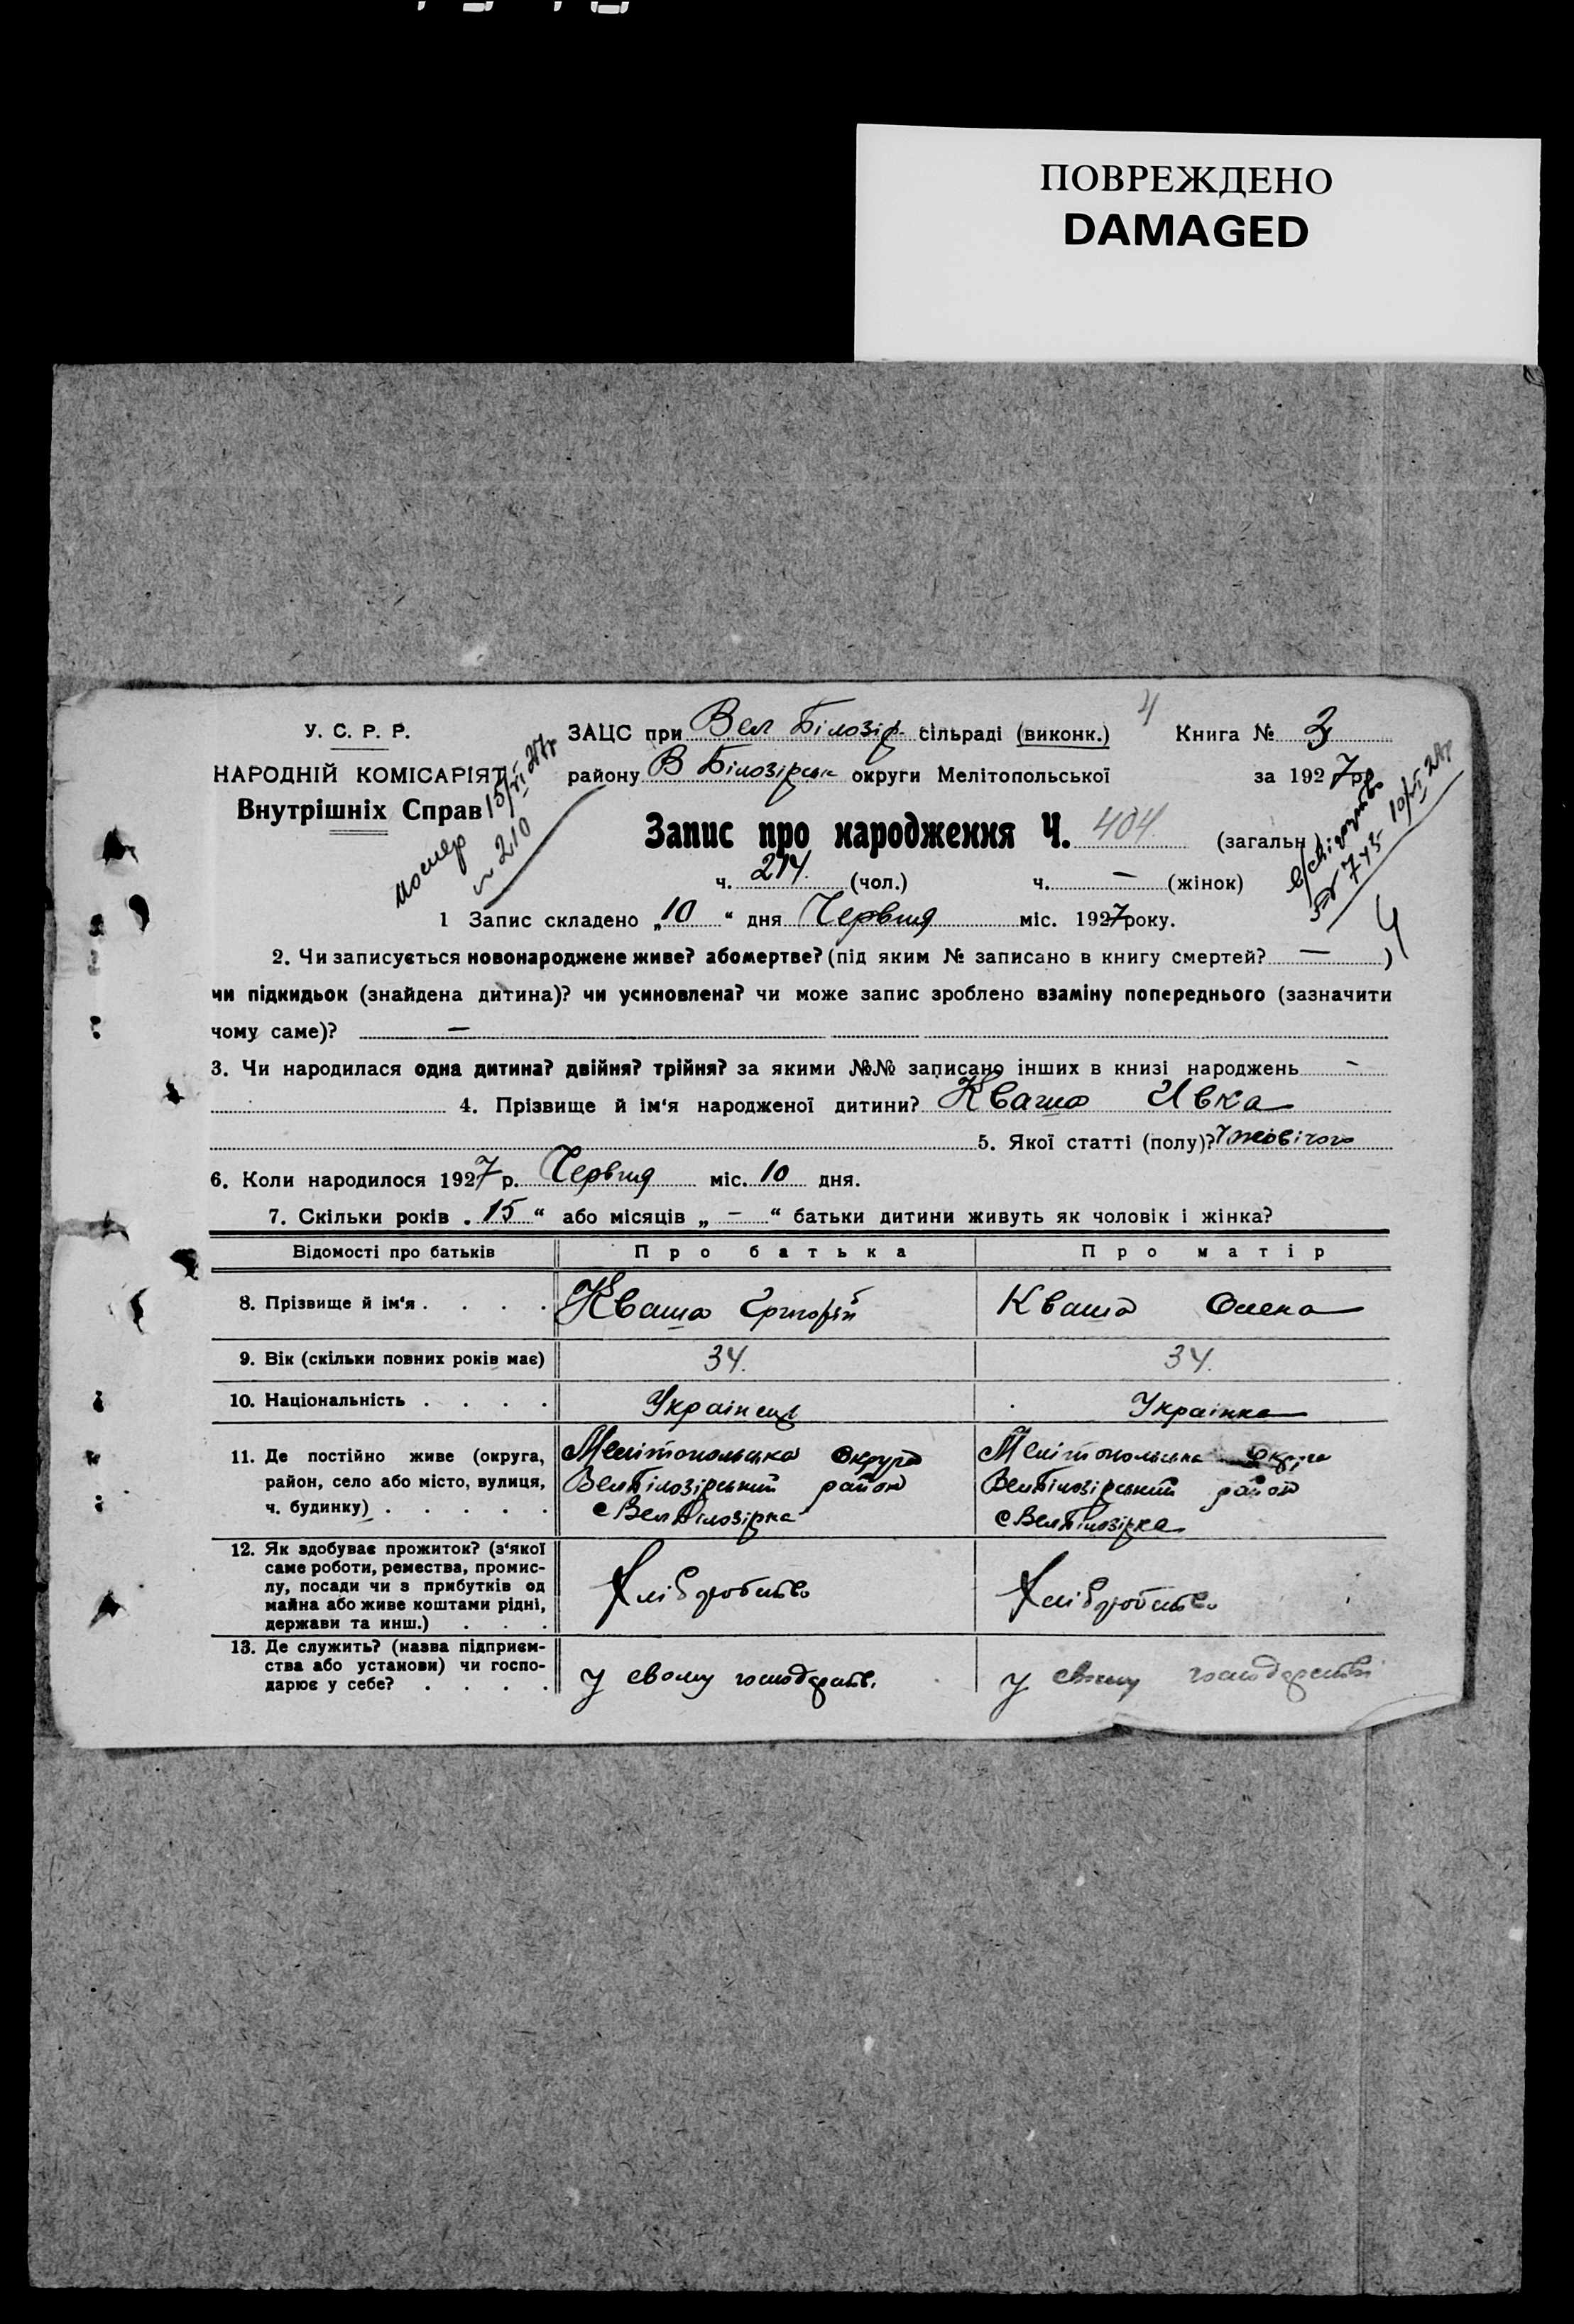 ПОВРЕЖДЕНО
DAMAGED
У. С. Р. Р.
НАРОДНІЙ КОМІСАРІЯТ
Внутрішніх Справ
помер 15/VI 27г
№ 210
4
ЗАЦС при Вел Білозір. сільраді (виконк.) Книга № 3
району В Білозірськ округи Мелітопольської за 1927 р.
Запис про народження Ч. 404. (загальн.)
ч. 214. (чол.) ч. — (жінок)
№ 743 10/VI 27г
1 Запис складено „10 “ дня Червня міс. 1927 року.
2. Чи записується новонароджене живе? або мертве? (під яким № записано в книгу смертей? — )
чи підкидьок (знайдена дитина)? чи усиновлена? чи може запис зроблено взаміну попереднього (зазначити
чому саме)? —
3. Чи народилася одна дитина? двійня? трійня? за якими №№ записано інших в книзі народжень -
4. Прізвище й ім‘я народженої дитини? Кваша Ивка
5. Якої статті (полу)? Чоловічого
6. Коли народилося 1927 р. Червня міс. 10 дня.
7. Скільки років „ 15 “ або місяців „ — “ батьки дитини живуть як чоловік і жінка?
Відомості про батьків Про батька Про матір
8. Прізвище й ім‘я . . . . Кваша Григорій Кваша Олена
9. Вік (скільки повних років має) 34. 34.
10. Національність . . . . Українець Українка
11. Де постійно живе (округа, Мелітопольська Округа Мелітопольська округа
район, село або місто, вулиця, ВелБілозірський район ВелБілозірський район
ч. будинку) . . . . . с ВелБілозірка с ВелБілозірка
12. Як здобуває прожиток? (з‘якої
саме роботи, ремества, промис-
лу, посади чи з прибутків од Хліборобство Хліборобство
майна або живе коштами рідні,
держави та инш.) . . .
13. Де служить? (назва підприєм-
ства або установи) чи госпо- у свому господарств. у свому господарстві
дарює у себе? . . . .